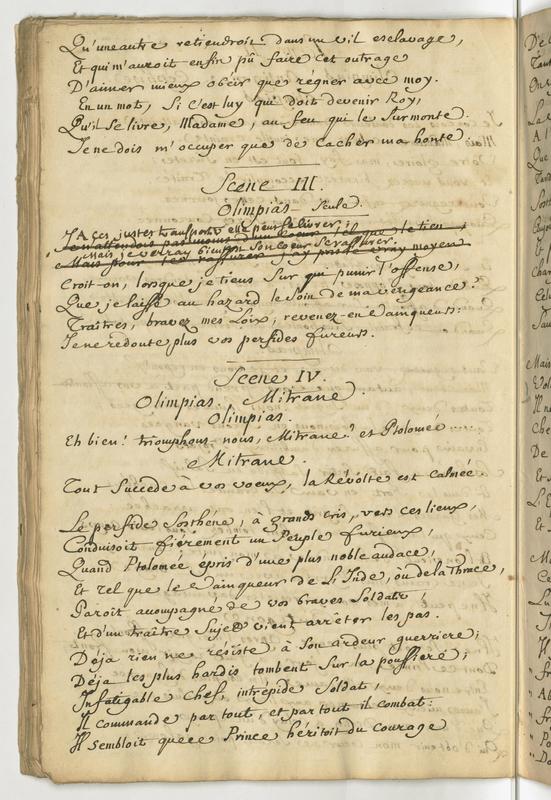 Qu'une autre retiendroit dans un vil esclavage,
Et qui m'auroit enfin pû faire cet outrage
D'aimer mieux obéir que régner avec moy.
En un mot, Si c'est luy qui doit devenir Roy,
Qu'il se livre, Madame, au feu qui le Surmonte.
Je ne dois m'occuper que de cacher ma honte.
Scene III.
Olimpias Seule.
A ces justes transports elle peut se livrer;
Je n'attendois pas moins d'un coeur tel que le tien;
Mais je verray bientost Son coeur Se rassurer.
Mais pour les rassurer j'ay pris le vray moyen
Croit-on, lorsque je tiens Sur qui punir l'offense,
Que je laisse au hazard le Soin de ma vengeance?
Traitres, bravez mes Loix, revenez-en Vainqueurs:
Je ne redoute plus vos perfides fureurs.
Scene IV.
Olimpias. Mitrane.
Olimpias.
Eh bien! triomphons-nous, Mitrane? et Ptolomée.....
Mitrane.
Tout Succede à vos voeux, la Révolte est calmée.
Le perfide Sosthéne, à grands cris, vers ces lieux,
Conduisoit fiérement un Peuple furieux,
Quand Ptolomée épris d'une plus noble audace,
Et tel que le Vainqueur de L'Inde, ou de la Thrace,
Paroit accompagné de vos braves Soldats,
Et d'un traitre Sujet vient arrêter les pas.
Déja rien ne résiste à Son ardeur guerriere;
Déja les plus hardis tombent Sur la poussiére;
Infatigable Chef, intrépide Soldat,
Il commande partout, et partout il combat:
Il sembloit que ce Prince héritoit du courage